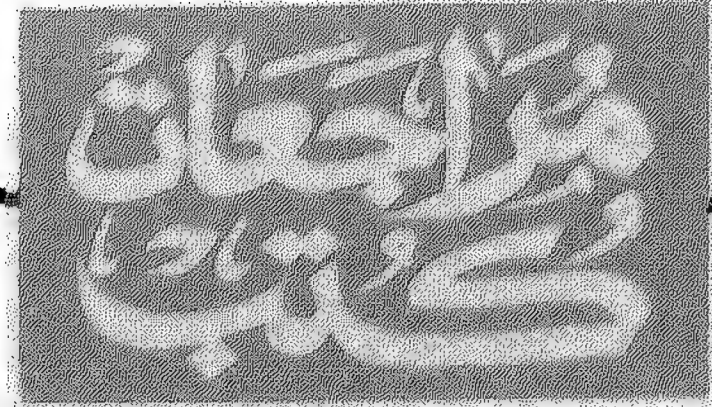 مُرَاجَعَاتُ
كُتُبٍ